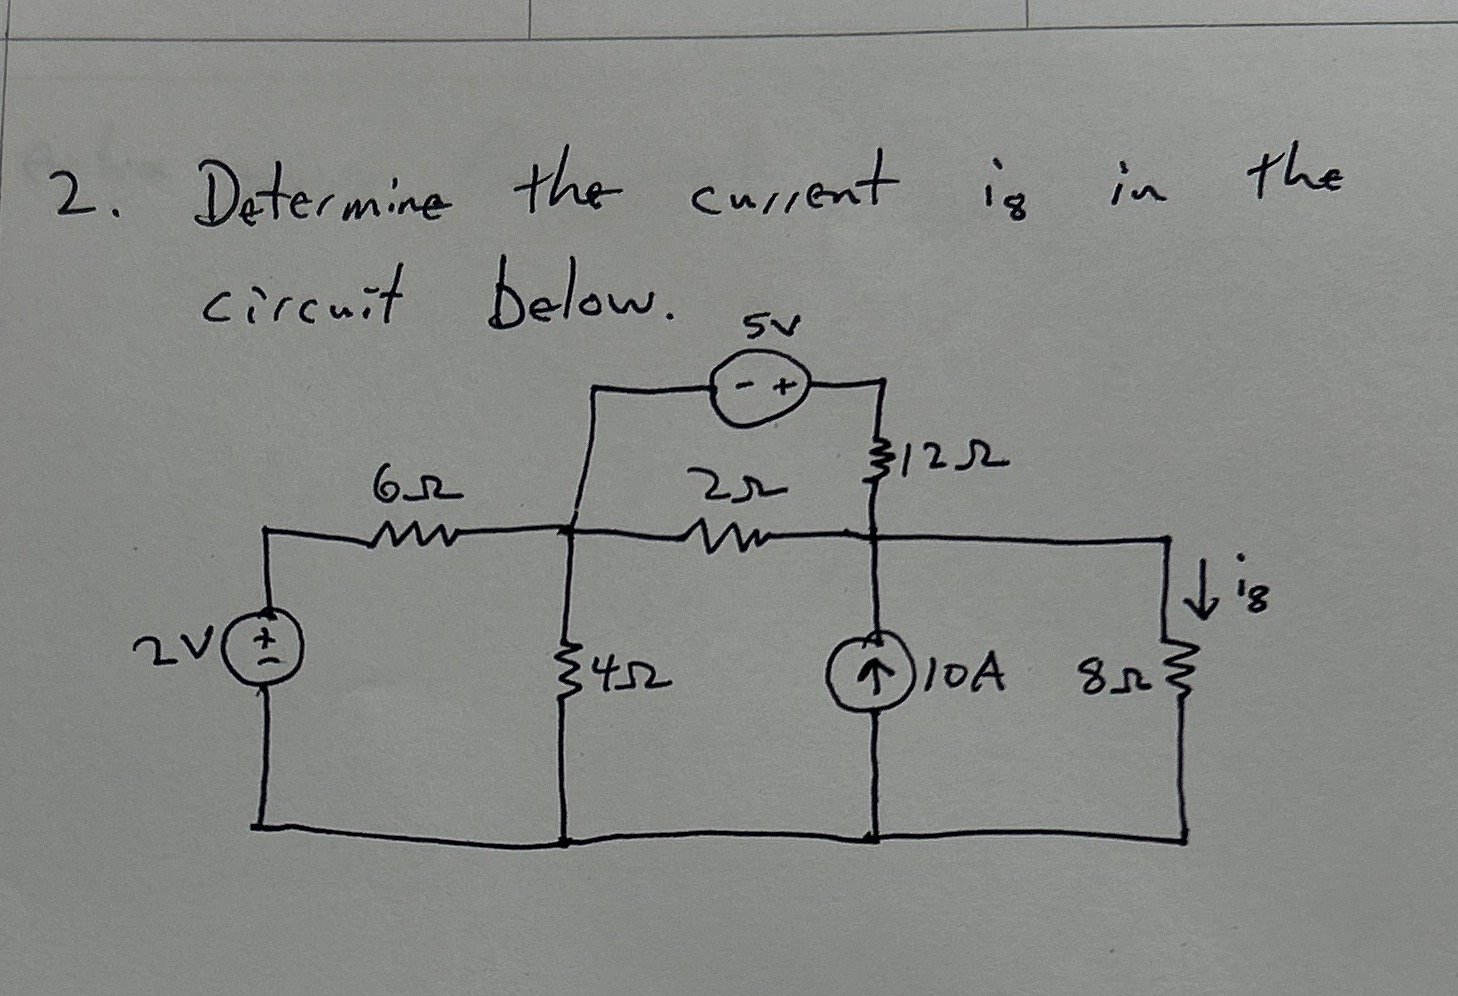 2. Determine the current i8 in the
circuit below.
5V
- +
12Ω
6Ω
2Ω
i8
2V
+
-
4Ω
10A
8Ω